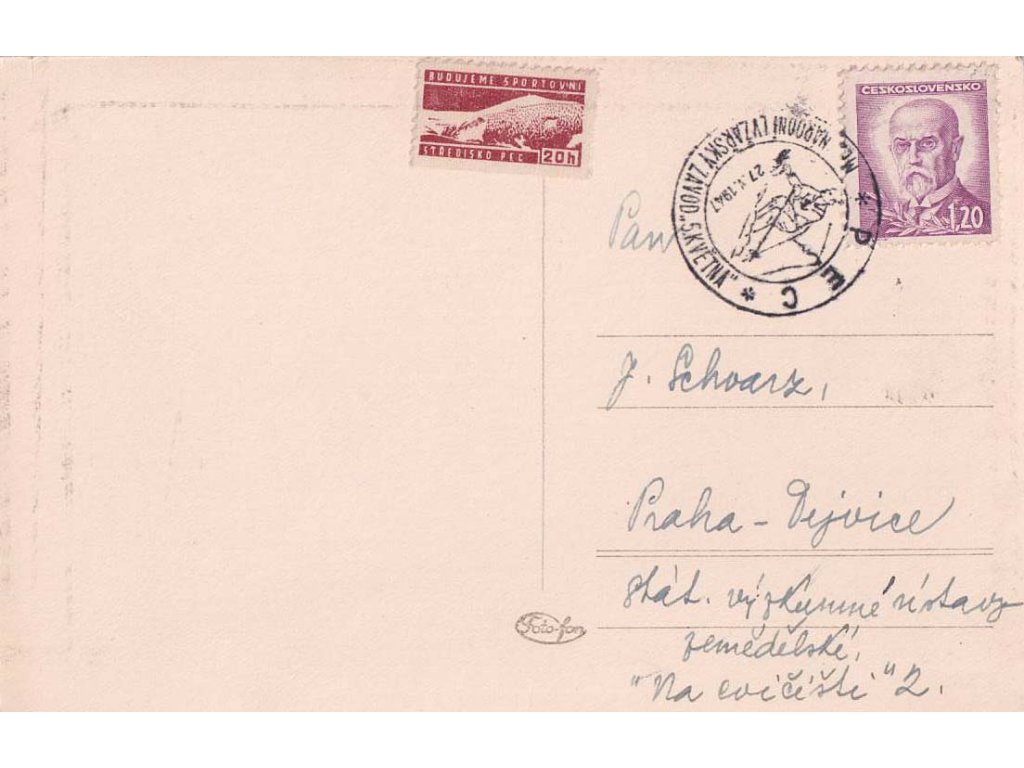 BUDUJEME SPORTOVNÍ
STŘEDISKO PEC 20h
ČESKOSLOVENSKO
1,20
NÁRODNÍ LYŽAŘSKÝ ZÁVOD „5. KVĚTNA"
* PEC *
1947
Pan
J. Schvarz,
Praha - Dejvice
Stát. výzkumné ústavy
zemědělské,
"Na cvičišti" 2.
Foto-fon